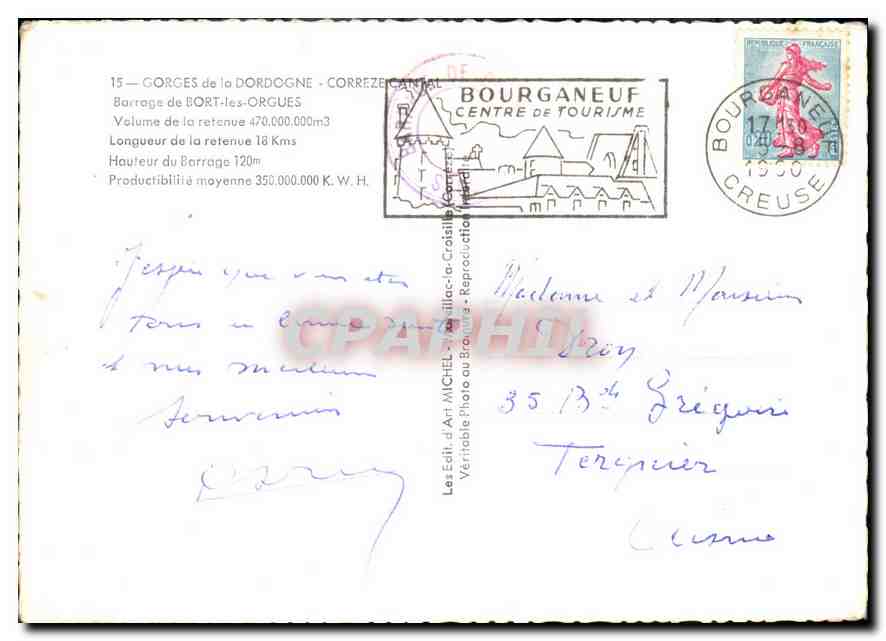 15 — GORGES de la DORDOGNE - CORREZE CANTAL
Barrage de BORT-les-ORGUES
Volume de la retenue 470.000.000m3
Longueur de la retenue 18 Kms
Hauteur du Barrage 120m
Productibilité moyenne 350.000.000 K. W. H.
BOURGANEUF
CENTRE DE TOURISME
REPUBLIQUE FRANÇAISE
0,20
BOURGANEUF
17 H30
1960
CREUSE
J'espère que vous êtes
tous en bonne santé
et mes meilleurs
souvenirs
Les Edit. d'Art MICHEL - la-Croisille (Corrèze)
Véritable Photo au Bromure - Reproduction interdite
Madame et Monsieur
35 Bd Grégoire
Tergnier
Aisne
CPAPHIL